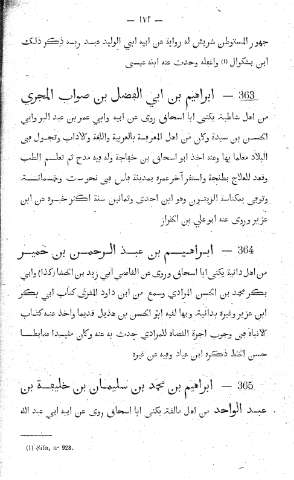 — ١٧٢ —
جهور المستوطن شريش له رواية عن ابيه ابي الوليد عبد ربه ذكر ذلك
ابن بشكوال (1) واغفله وحدث عنه ابنه عيسى
363 — ابراهيم بن ابي الفضل بن صواب الحجري
من اهل شاطبة يكنى ابا اسحاق روى عن ابيه وابي عمر بن عبد البر وابي
الحسن بن سيدة وكان من اهل المعرفة بالعربية واللغة والآداب وتجول في
البلاد معلما بها وعنه اخذ ابو اسحاق بن خفاجة وله فيه مدح ثم تعلم الطب
وقعد للعلاج بطنجة واستقر آخر عمره بمدينة فاس في نحو ست وخمسمائة
وتوفي بمكناسة الزيتون وهو ابن احدى وثمانين سنة اكثر خبره عن ابن
عزير وروى عنه ابو علي بن الخراز
364 — ابراهيم بن عبد الرحمن بن حمير
من اهل دانية يكنى ابا اسحاق وروى عن القاضي ابي زيد بن الحشا (كذا) وابي
بكر محمد بن الحسن المرادي وسمع من ابن داود المقري كتاب ابي بكر
ابن عزير وغيره بدانية وبها لقيه ابو الحسن بن هذيل قديما واخذ عنه كتاب
الانباه في وجوب اجزة القضاه للمرادي حدث به عنه وكان مقيدا ضابطا
حسن الخط ذكره ابن عياد وفيه عن غيره
365 — ابراهيم بن محمد بن سليمان بن خليفة بن
عبد الواحد من اهل مالقة يكنى ابا اسحاق روى عن ابيه ابي عبد الله
(1) Sila, nº 928.